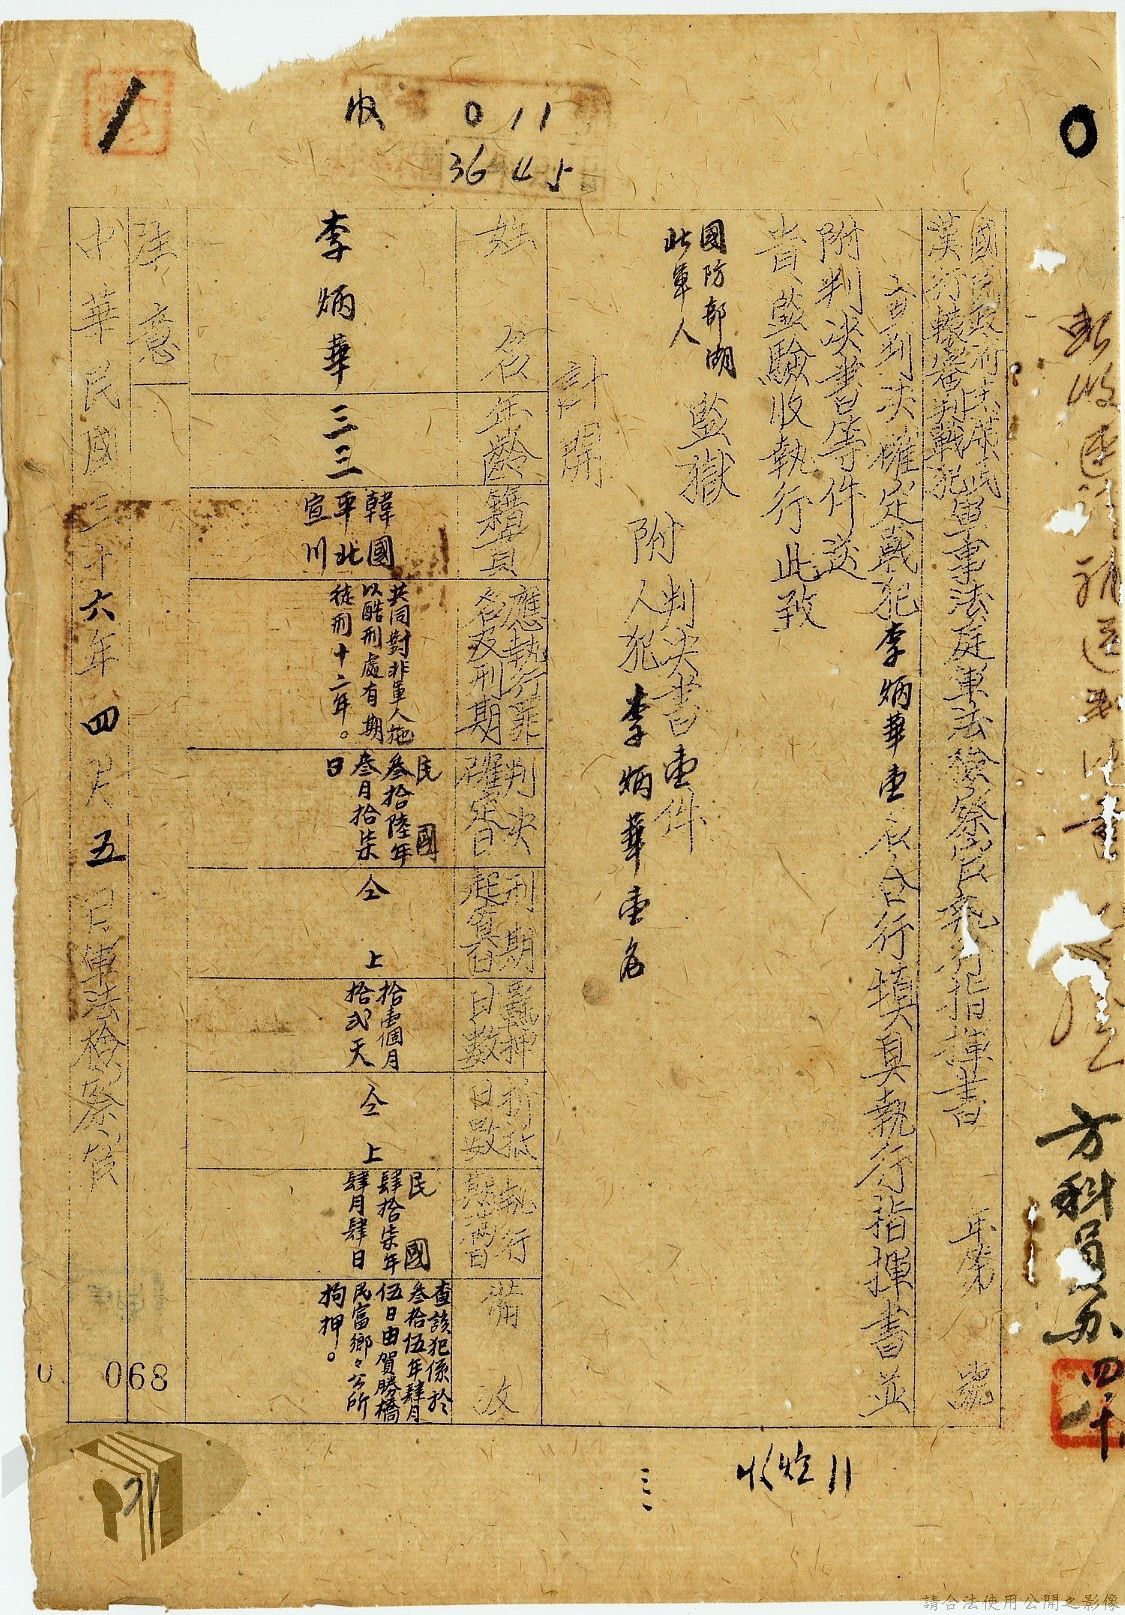 收 011
3645
0
方科員办
四
國民政府主席武
漢行轅審判戰犯軍事法庭軍法檢察官執行指揮書 年第 號
查判決確定戰犯李炳華壹名合行填具執行指揮書並
附判決書等件送
監驗收執行此致
國防部
此軍人
監獄
附
判決書壹件
人犯李炳華壹名
計開
姓名
年齡
籍貫
應執行罪
名及刑期
判決
確定日
刑期
起算日
羈押
日數
折抵
日數
執行
期滿日
備攷
李炳華
三三
韓國
平北
宣川
共同對非軍人施
以酷刑處有期
徒刑十二年。
民國
叁拾陸年
叁月拾柒
日
仝上
拾壹個月
拾弍天
仝上
民國
肆拾柒年
肆月肆日
查該犯係於
叁拾伍年肆月
伍日由賀勝橋
民富鄉々公所
拘押。
注意
中華民國三十六年四月五日軍法檢察官
068
收 11
三
請合法使用公開之影像